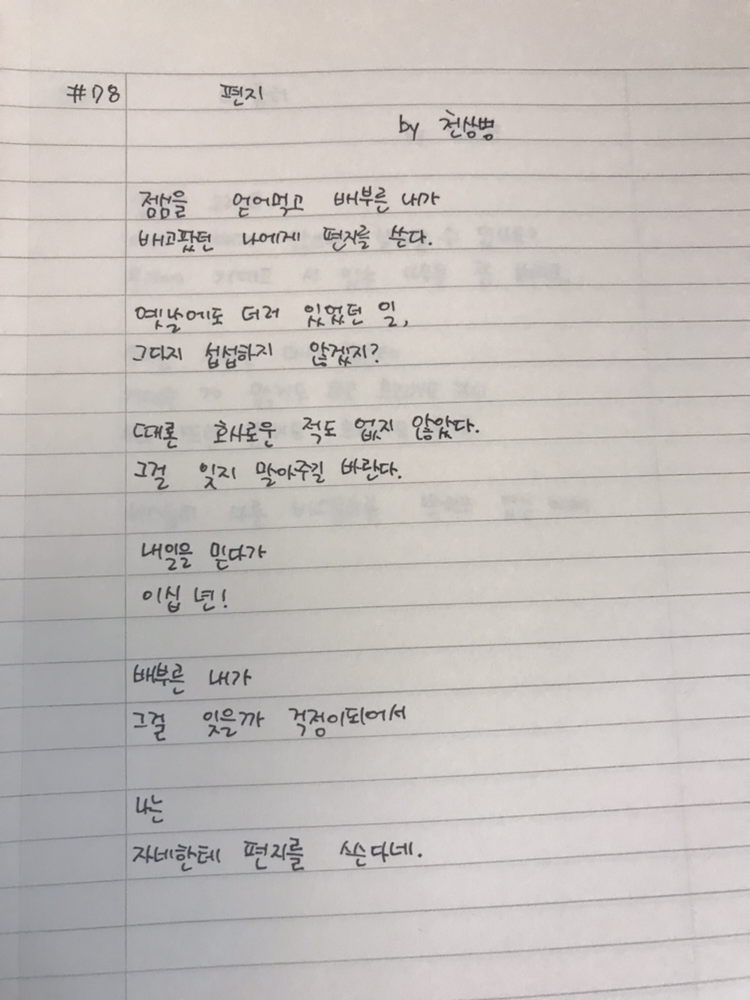 #78 편지
by 천상병
점심을 얻어먹고 배부른 내가
배고팠던 나에게 편지를 쓴다.
옛날에도 더러 있었던 일,
그다지 섭섭하지 않겠지?
때론 호사로운 적도 없지 않았다.
그걸 잊지 말아주길 바란다.
내일을 믿다가
이십 년!
배부른 내가
그걸 잊을까 걱정이되어서
나는
자네한테 편지를 쓴다네.